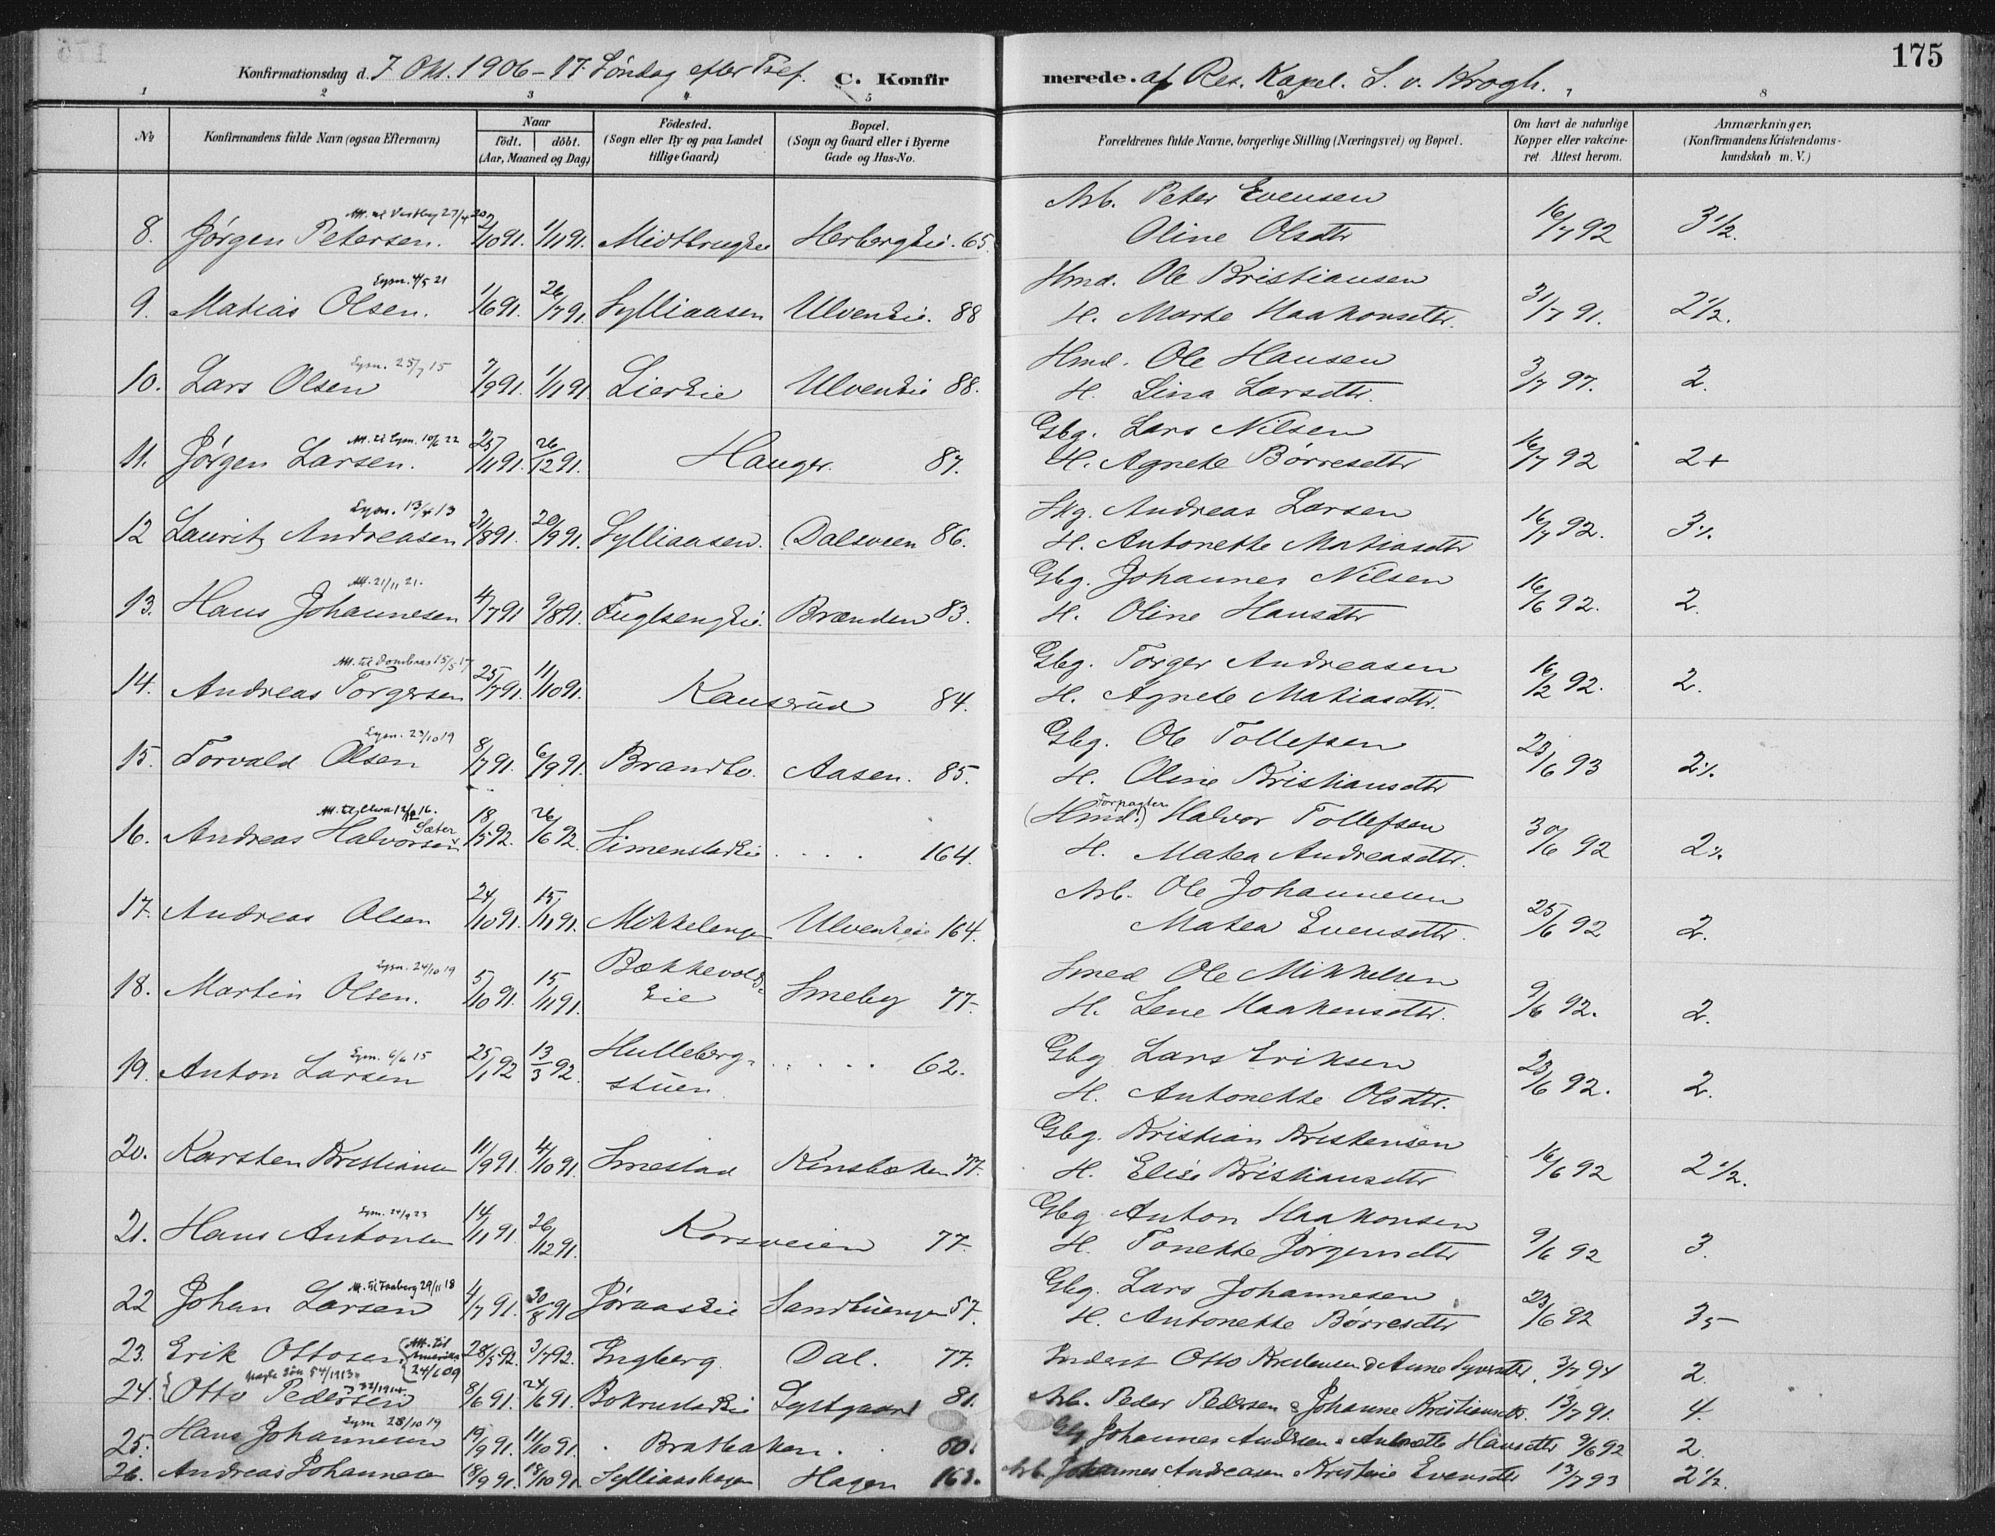 175
Konfirmationsdag d. 7 Okt. 1906 - 17 Søndag efter Tref. C. Konfirmerede. af Res. Kapel. S. v. Krogh.
1 2 3 4 5 8
No Konfirmandens fulde Navn (ogsaa Efternavn) Naar födt. döbt. (Aar, Maaned og Dag) Födested. (Sogn eller By og paa Landet tillige Gaard) Bopæl. (Sogn og Gaard eller i Byerne Gade og Hus-No. Forældrenes fulde Navne, borgerlige Stilling (Næringsvei) og Bopæl. Om havt de naturlige Kopper eller vakcineret. Attest herom. Anmærkninger, (Konfirmandens Kristendomskundskab m. V.)
Arb. Peter Evensen
8. Jørgen Petersen. 1/11 91. 65. Oline Olsdtr 16/7 92 3 1/2.
Lysn. 4/5 21 Hmd. Ole Kristiansen
9. Matias Olsen. 1/6 91. 26/7 91. Sylliaasen Ulveneie. 88 H. Marte Haakonsdtr. 31/7 91. 2 1/2.
Lysn. 25/7 15 Hmd. Ole Hansen
10. Lars Olsen 7/9 91. 1/11 91 Liereie Ulveneie 88. H. Lina Larsdtr. 3/7 97. 2.
Att. til Lysn. 10/6 22 Gbg. Lars Nilsen
11. Jørgen Larsen. 25/11 91. 26/12 91. Hauger. 87. H. Agnete Børresdtr 16/7 92 2+
Lysn. 13/4 13 Andreas Larsen
12 Laurits Andreasen 31/8 91. 20/9 91. Sylliaasen. Dalsveen 86. H. Antonette Matiasdtr 16/7 92. 3 1/.
Att. 21/11 21. Gbg. Johannes Nilsen
13. Hans Johannesen 4/7 91 9/8 91. Fuglsengeie. Brænden 83. H. Oline Hansdtr 16/6 92. 2.
Att. til Dombaas 15/5 17 Gbg. Torger Andreasen
14. Andreas Torgersen 25/7 91. 11/10 91. Kauserud 84. H. Agnete Matiasdtr. 16/2 92. 2.
Lysn. 23/10 19 Gbg. Ole Tollefsen
15. Torvald Olsen 8/7 91. 6/9 91. Brandbo. Aasen. 85. H. Oline Kristiansdtr 23/6 93 2 1/.
Sæter (Hmd.) Forpagter Halvor Tollefsen
16. Andreas Halvorsen 18/5 92. 26/6 92. Simenstadeie . . . . 164. H. Matea Andreasdtr. 30/6 92 2 1/.
Arb. Ole Johannesen
17. Andreas Olsen 24/10 91. 15/11 91. Mikkelengen Ulveneie 164. Matea Evensdtr. 25/6 92 2.
Lysn. 24/10 19 Smed Ole Mikkelsen
18. Martin Olsen. 5/10 91. 15/11 91. Bækkevolds-eie Smeby 77. H. Lene Haakensdtr. 9/6 92. 2.
Lysn. 6/6 15 Gbg Lars Eriksen
19. Anton Larsen 25/1 92 13/3 92. Hulleberg-stuen . . . . . 62. H. Antonette Olsdtr. 23/6 92. 2.
Gbg. Kristian Kristensen
20. Karsten Kristiansen 11/9 91. 4/10 91. Smestad 77. H. Elise Kristiansdtr 16/6 92 2 1/2.
Gbg Anton Haakonsen
21. Hans Antonsen 14/11 91 26/12 91. Korsveien 77. H. Tonette Jørgensdtr 9/6 92 3.
Att. til Faaberg 29/11 18 Gbg. Lars Johannesen
22 Johan Larsen 4/7 91. 30/8 91 Jøraaseie Sandtuengen 57. H. Antonette Børresdtr 23/6 92 3 5
23. Erik Ottosen (Att. til Amerika 24/6 09 28/5 92. 3/7 92. Engberg. Dal. 77. Otto Kristensen & Anne Syversdtr. 3/7 94 2.
24. Otto Pedersen 8/6 91. 24/6 91. Bokrudstadeie Lystgaard 81. Arb. Peder Pedersen & Johanne Kristiansdtr. 13/7 91. 4.
Lysn 28/10 19
25. Hans Johannesen 19/9 91. 11/10 91. . Bratbakken. . 60. Gbg Johannes Andersen & Antonette Hansdtr 9/6 92 2.
26. Andreas Johannesen 18/9 91. 18/10 91. Sylliaashagen Hagen 163. Arb. Johannes Andreasen & Kristine Evensdtr 13/7 93 2 1/2.